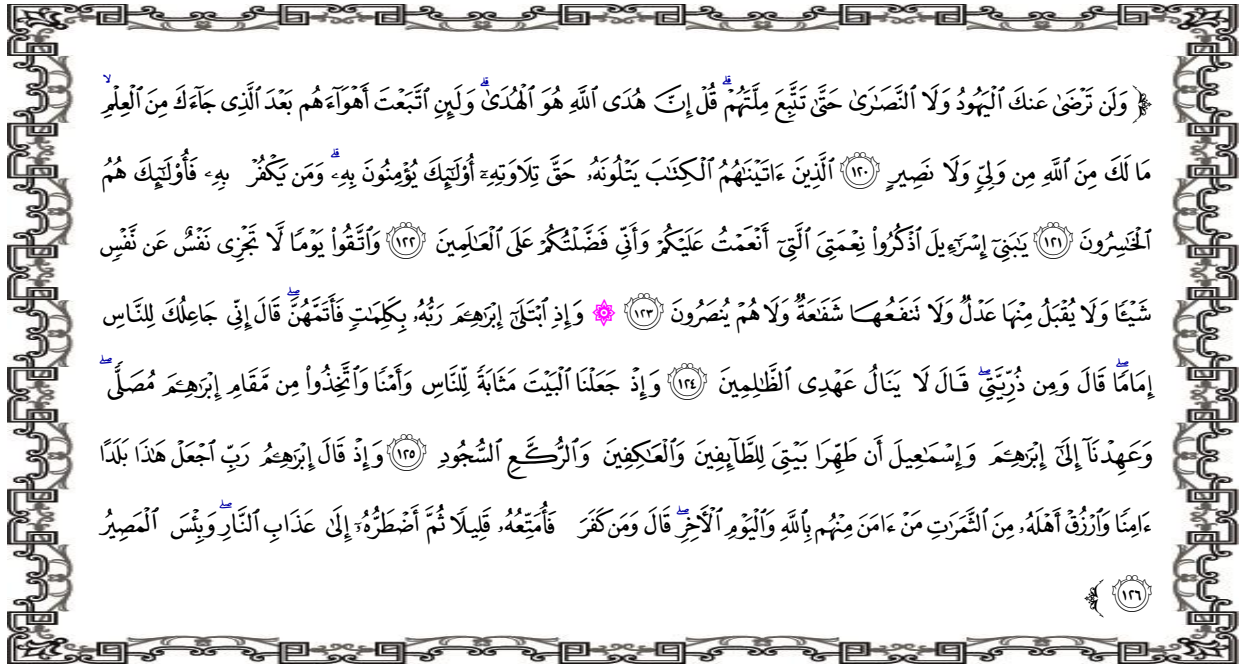 ﴿ وَلَن تَرۡضَىٰ عَنكَ ٱلۡيَهُودُ وَلَا ٱلنَّصَٰرَىٰ حَتَّىٰ تَتَّبِعَ مِلَّتَهُمۡۗ قُلۡ إِنَّ هُدَى ٱللَّهِ هُوَ ٱلۡهُدَىٰۗ وَلَئِنِ ٱتَّبَعۡتَ أَهۡوَآءَهُم بَعۡدَ ٱلَّذِي جَآءَكَ مِنَ ٱلۡعِلۡمِۙ
مَا لَكَ مِنَ ٱللَّهِ مِن وَلِيّٖ وَلَا نَصِيرٍ ١٢٠ ٱلَّذِينَ ءَاتَيۡنَٰهُمُ ٱلۡكِتَٰبَ يَتۡلُونَهُۥ حَقَّ تِلَاوَتِهِۦٓ أُوْلَٰٓئِكَ يُؤۡمِنُونَ بِهِۦۗ وَمَن يَكۡفُرۡ بِهِۦ فَأُوْلَٰٓئِكَ هُمُ
ٱلۡخَٰسِرُونَ ١٢١ يَٰبَنِيٓ إِسۡرَٰٓءِيلَ ٱذۡكُرُواْ نِعۡمَتِيَ ٱلَّتِيٓ أَنۡعَمۡتُ عَلَيۡكُمۡ وَأَنِّي فَضَّلۡتُكُمۡ عَلَى ٱلۡعَٰلَمِينَ ١٢٢ وَٱتَّقُواْ يَوۡمٗا لَّا تَجۡزِي نَفۡسٌ عَن نَّفۡسٖ
شَيۡـٔٗا وَلَا يُقۡبَلُ مِنۡهَا عَدۡلٞ وَلَا تَنفَعُهَا شَفَٰعَةٞ وَلَا هُمۡ يُنصَرُونَ ١٢٣ ۞ وَإِذِ ٱبۡتَلَىٰٓ إِبۡرَٰهِـۧمَ رَبُّهُۥ بِكَلِمَٰتٖ فَأَتَمَّهُنَّۖ قَالَ إِنِّي جَاعِلُكَ لِلنَّاسِ
إِمَامٗاۖ قَالَ وَمِن ذُرِّيَّتِيۖ قَالَ لَا يَنَالُ عَهۡدِي ٱلظَّٰلِمِينَ ١٢٤ وَإِذۡ جَعَلۡنَا ٱلۡبَيۡتَ مَثَابَةٗ لِّلنَّاسِ وَأَمۡنٗا وَٱتَّخِذُواْ مِن مَّقَامِ إِبۡرَٰهِـۧمَ مُصَلّٗىۖ
وَعَهِدۡنَآ إِلَىٰٓ إِبۡرَٰهِـۧمَ وَإِسۡمَٰعِيلَ أَن طَهِّرَا بَيۡتِيَ لِلطَّآئِفِينَ وَٱلۡعَٰكِفِينَ وَٱلرُّكَّعِ ٱلسُّجُودِ ١٢٥ وَإِذۡ قَالَ إِبۡرَٰهِـۧمُ رَبِّ ٱجۡعَلۡ هَٰذَا بَلَدًا
ءَامِنٗا وَٱرۡزُقۡ أَهۡلَهُۥ مِنَ ٱلثَّمَرَٰتِ مَنۡ ءَامَنَ مِنۡهُم بِٱللَّهِ وَٱلۡيَوۡمِ ٱلۡأٓخِرِۖ قَالَ وَمَن كَفَرَ فَأُمَتِّعُهُۥ قَلِيلٗا ثُمَّ أَضۡطَرُّهُۥٓ إِلَىٰ عَذَابِ ٱلنَّارِۖ وَبِئۡسَ ٱلۡمَصِيرُ
١٢٦ ﴾